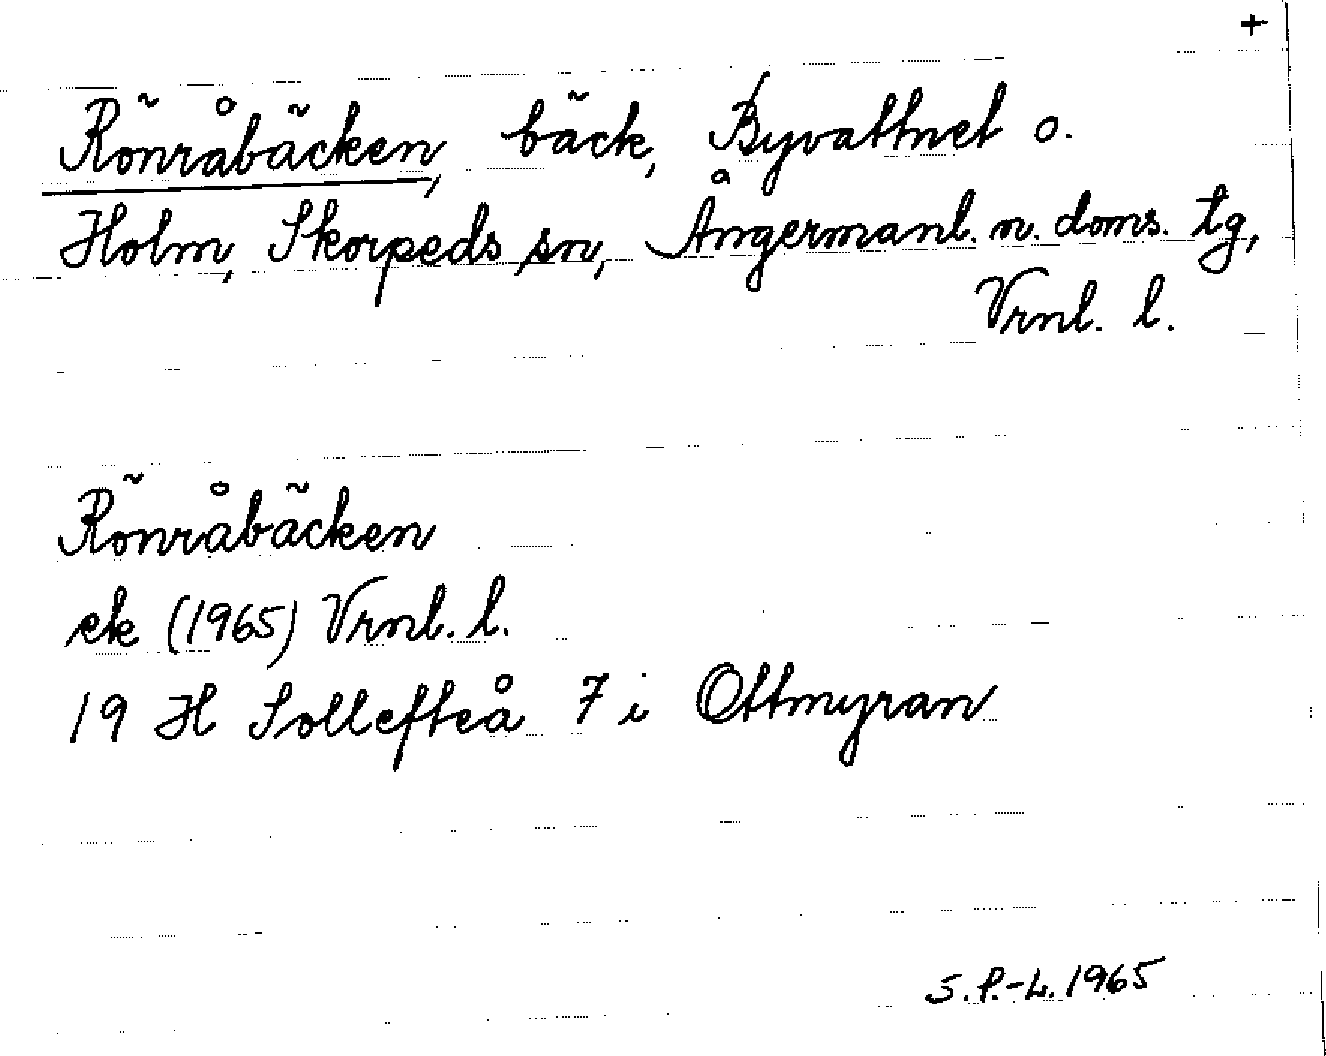 +
Rönråbäcken, bäck, Byvattnet o.
Holm, Skorpeds sn, Ångermanl. n. doms. tg,
Vrnl. l.
Rönråbäcken
ek (1965) Vrnl. l.
19 H Sollefteå 7 i Ottmyran
S.P.-L. 1965